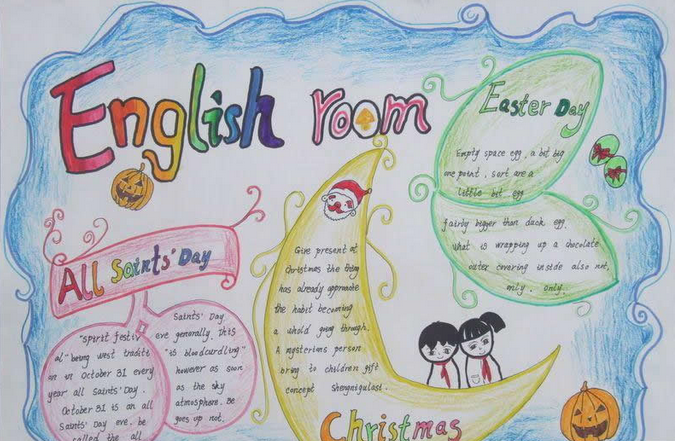 English room
Easter Day
Empty space egg, a bit big
one point, sort are a
little bit egg
fairly bigger than duck egg.
What is wrapping up a chocolate
outer covering inside also not,
only. only.
All Saints' Day
"Spirit festiv
al" being west traditi
on in October 31 every
year all Saints' Day.
October 31 is an all
Saints' Day eve. be
called the all
Saints' Day
eve generally. This
"is bloodcurdling"
however as soon
as the sky
atmosphere. Be
goes up not.
Give present at
Christmas the thing
has already approximate
the habit becoming
a whold going through.
A mysterious person
bring to children gift
concept Shengnigulasi.
Christmas